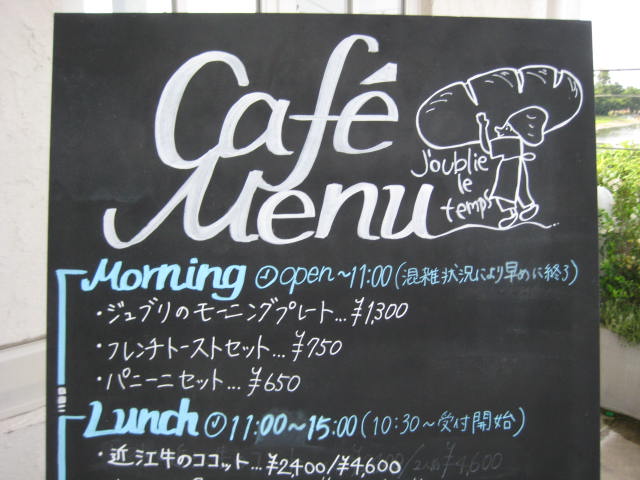 Café
Menu
J'oublie
le
temps
Morning open～11:00(混雑状況により早めに終了)
・ジュブリのモーニングプレート...¥1,300
・フレンチトーストセット...¥750
・パニーニセット...¥650
Lunch 11:00～15:00(10:30～受付開始)
・近江牛のココット...¥2400/¥4,600